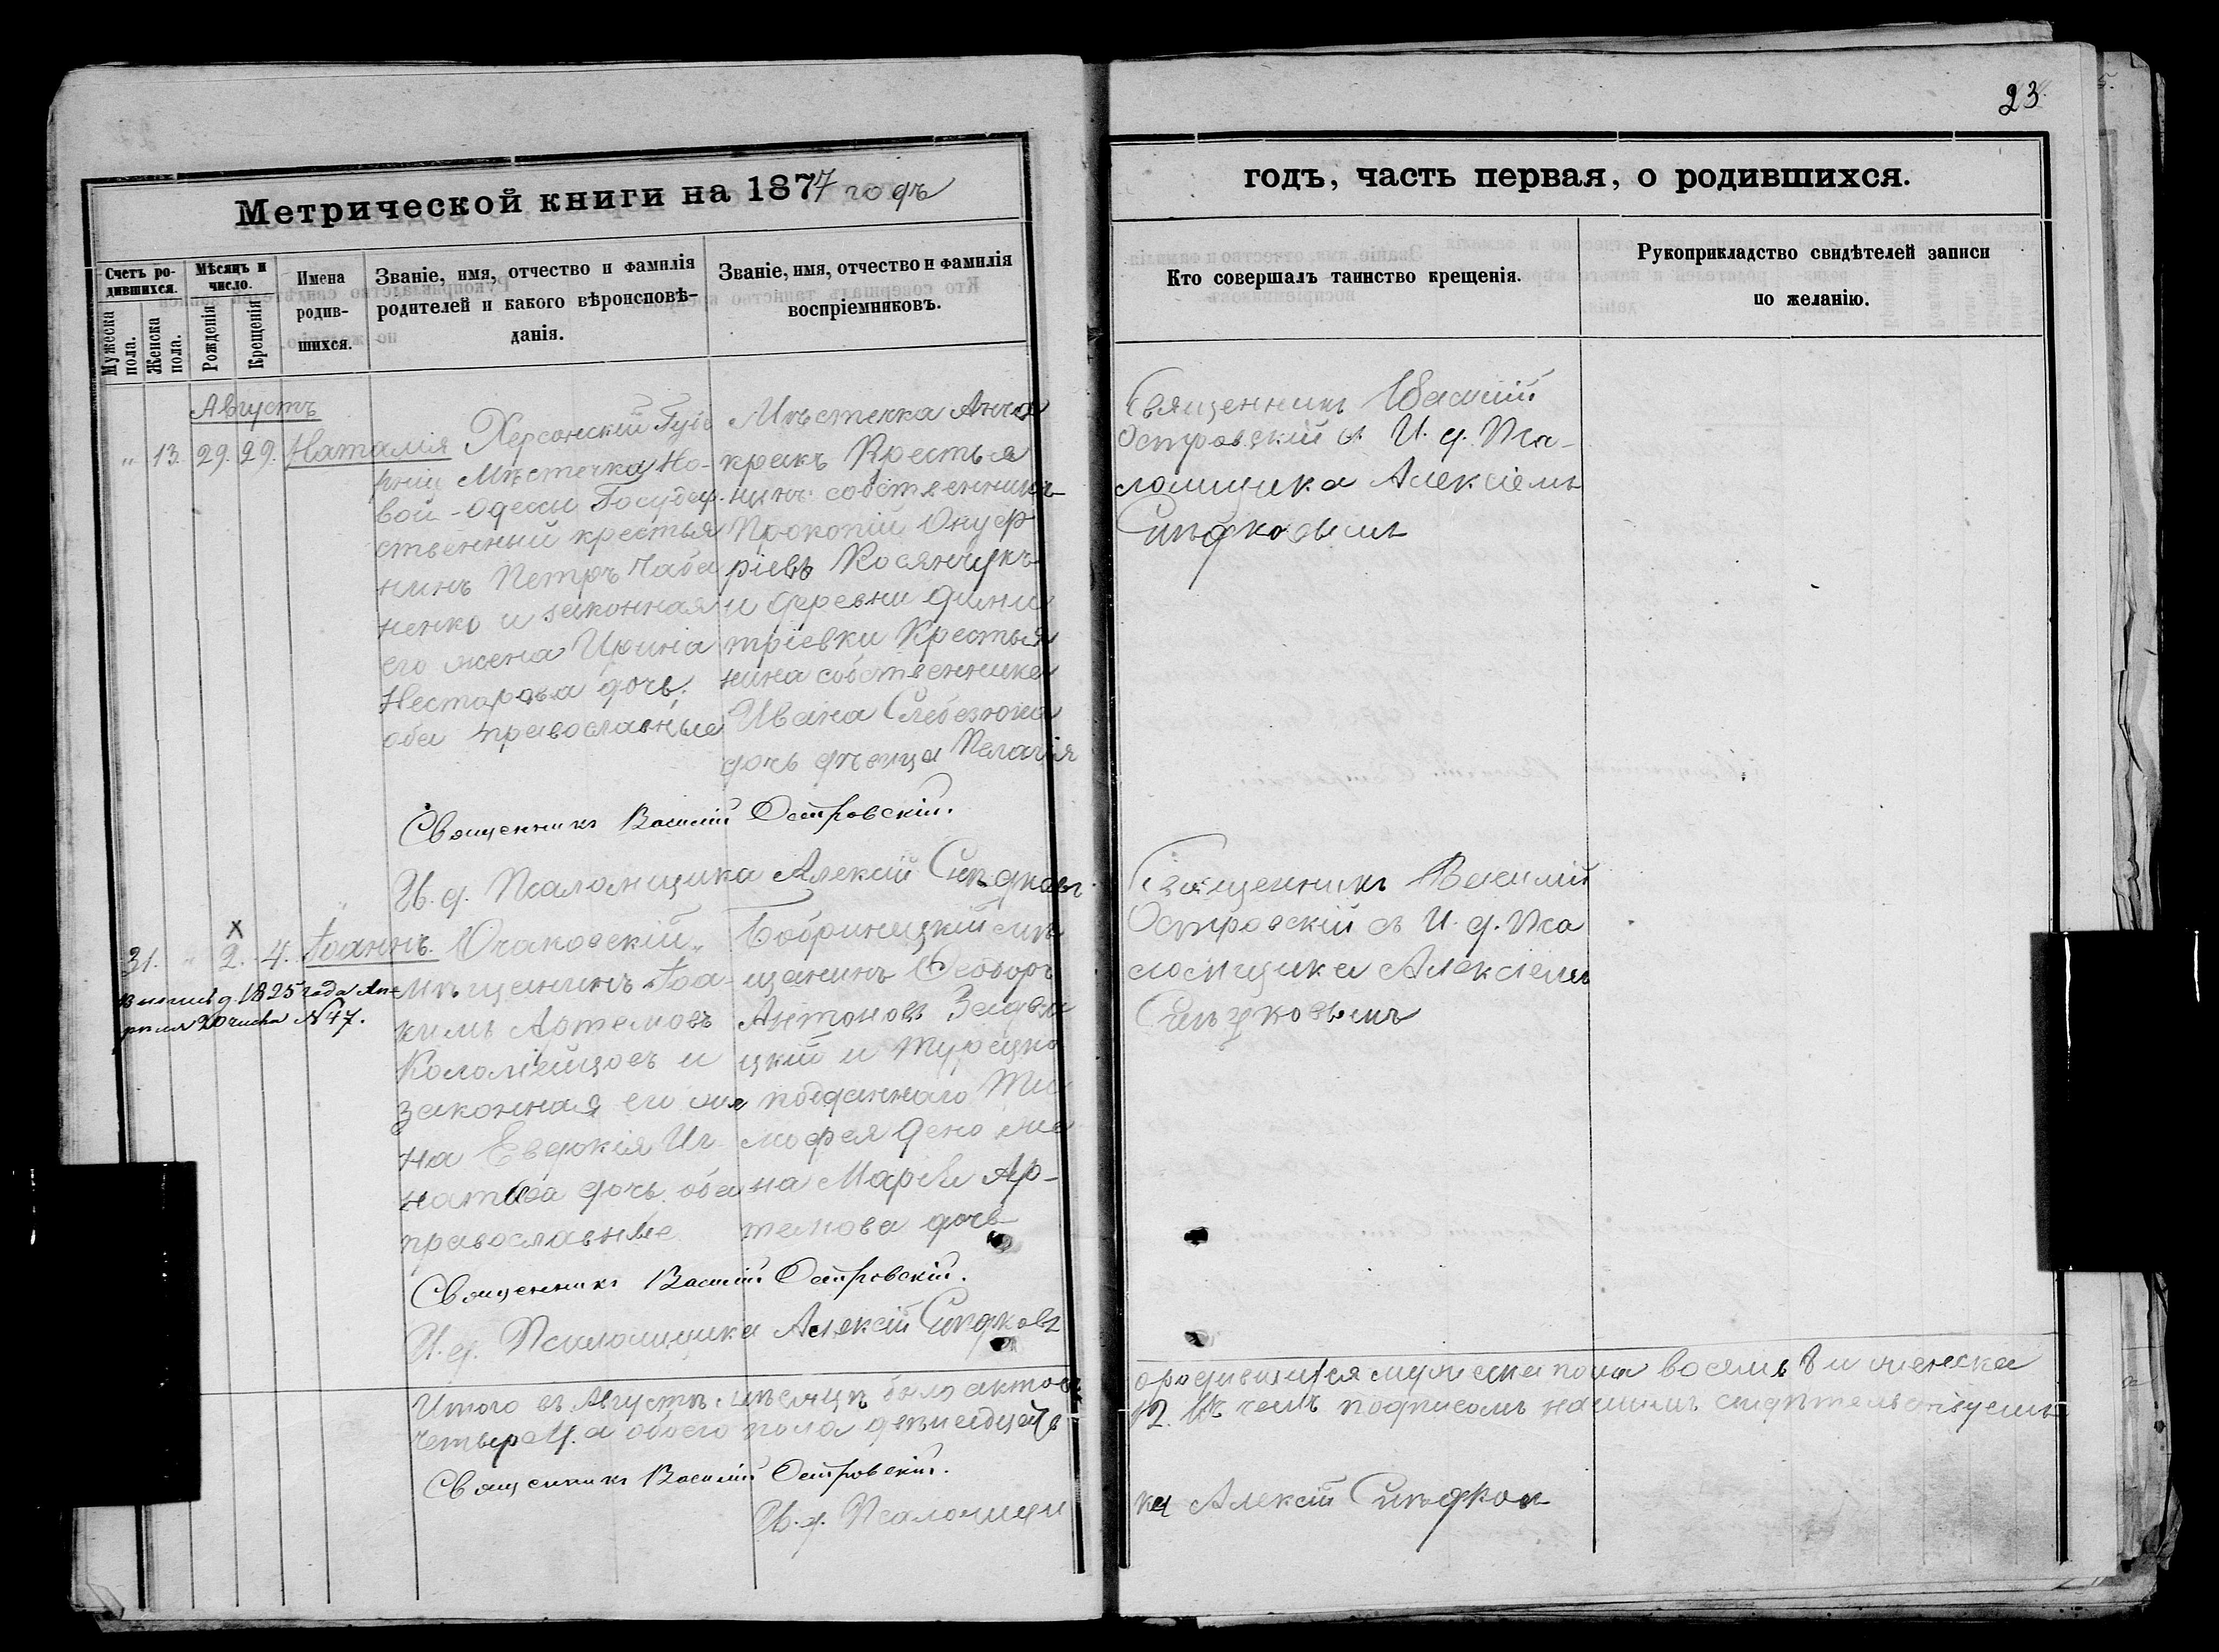 23
Метрической книги на 1877 годъ
годъ, часть первая, о родившихся.
Счетъ ро-
дившихся.
Мужеска пола.
Женска пола.
Мѣсяцъ и
число.
Рожденія
Крещенія
Имена
родив-
шихся.
Званіе, имя, отчество и фамилія
родителей и какого вѣроисповѣ-
данія.
Званіе, имя, отчество и фамилія
воспріемниковъ.
Кто совершалъ таинство крещенія.
Рукоприкладство свидѣтелей записи
по желанію.
Августъ
" 13. 29. 29. Наталія
Херсонскій Губе
рніи Мѣстечка Но-
вой-Одессы Государ-
ственный крестья
нинъ Петръ Чаба
ненко и законная
его жена Ирина
Несторова дочь.
оба православные
Мѣстечка Анча
кракъ Крестья
нинъ собственникъ
Прокопій Онуф
ріевъ Косянчукъ
и деревни Дими
тріевки Крестья
нина собственника
Ивана Слебезюка
дочь дѣвица Пелагія
Священникъ Василій
Островскій съ И. д. Пса-
ломщика Алексіемъ
Сиѣдковымъ
Священникъ Василій Островскій.
И. д. Псаломщика Алексій Сиѣдковъ
31. " 2. 4. Іоаннъ.
X
9. 1825 года Ап-
рѣля 20 числа № 47.
Очаковскій
Мѣщанинъ Іоа-
кимъ Артемовъ
Коломіейцовъ и
законная его же
на Евдокія Иг-
натова дочь. оба
православные
Бобринецкій мѣ
щанинъ Ѳеодоръ
Антоновъ Завад-
цкій и турецко
подданнаго Ти
мофея Дено же
на Марія Ар-
темова дочь
Священникъ Василій
Островскій съ И. д. Пса
ломщика Алексіемъ
Сиѣдковымъ
Священникъ Василій Островскій.
И. д. Псаломщика Алексій Сиѣдковъ
Итого въ Августѣ мѣсяцѣ было актовъ
о родившихся мужеска пола восемь 8 и женска
четыре 4. а обоего пола двѣнадцать
12. Въ чемъ подписомъ нашимъ свидѣтельствуемъ
Священникъ Василій Островскій.
И. д. Псаломщи
ка Алексій Сиѣдковъ